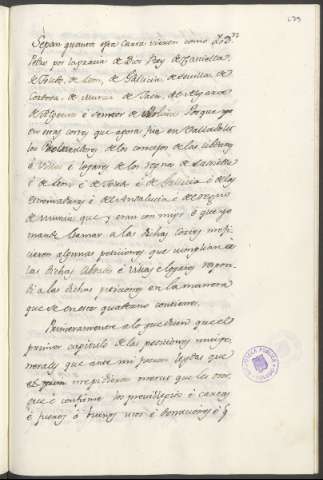 Sepan quantos esta Carta vieren como Yo Dn
Pedro por la gracia de Dios Rey de Castiella
de Toledo, de Leon, de Gallicia de Sevilla de
Cordova, de Murcia de Jaen, del Algarve
de Algecira é Sennor de Molina Porque yo
en estas cortes que agora fiz en Valladolid
los Procuradores de los concejos de las cibdades
é Villas é logares de los regnos de Castiella
é de Leon é de Toledo é de Gallicia é de las
Estremaduras é del Andalucia é del regno
de Murcia que y eran con migo é que yo
mandé llamar a las dichas Cortes me fi
cieron algunas peticiones que complian á
las dichas cibdades é villas é logares respon
di a las dichas peticiones en la manera
que de en este quaderno contiene.
Primeramente a lo que dicen que el
primer capitulo de las peticiones unige
nerales que ante mi fueron leydas que
me pidieron merced que les otor
gue é confirme los previllegios é cartas
é fueros é buenos usos é donaciones é q